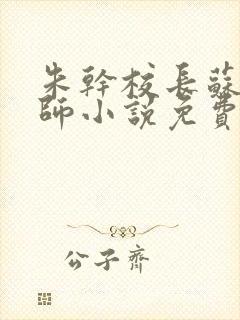 朱幹校長蘇
師小說免費
公子齊